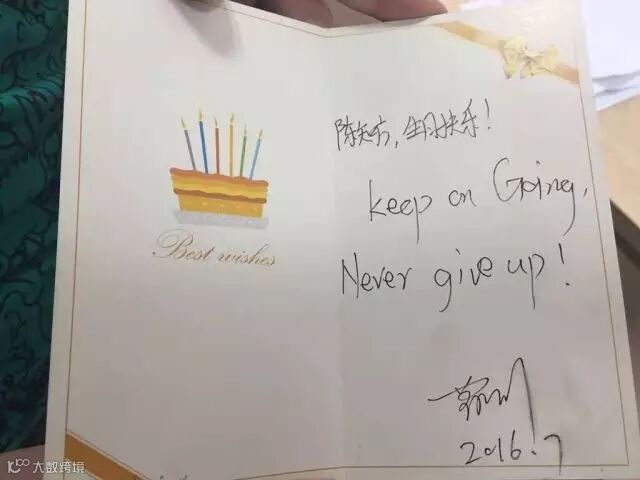 Best wishes
陈知方，生日快乐！
keep on Going,
Never give up!
2016.7
大数跨境